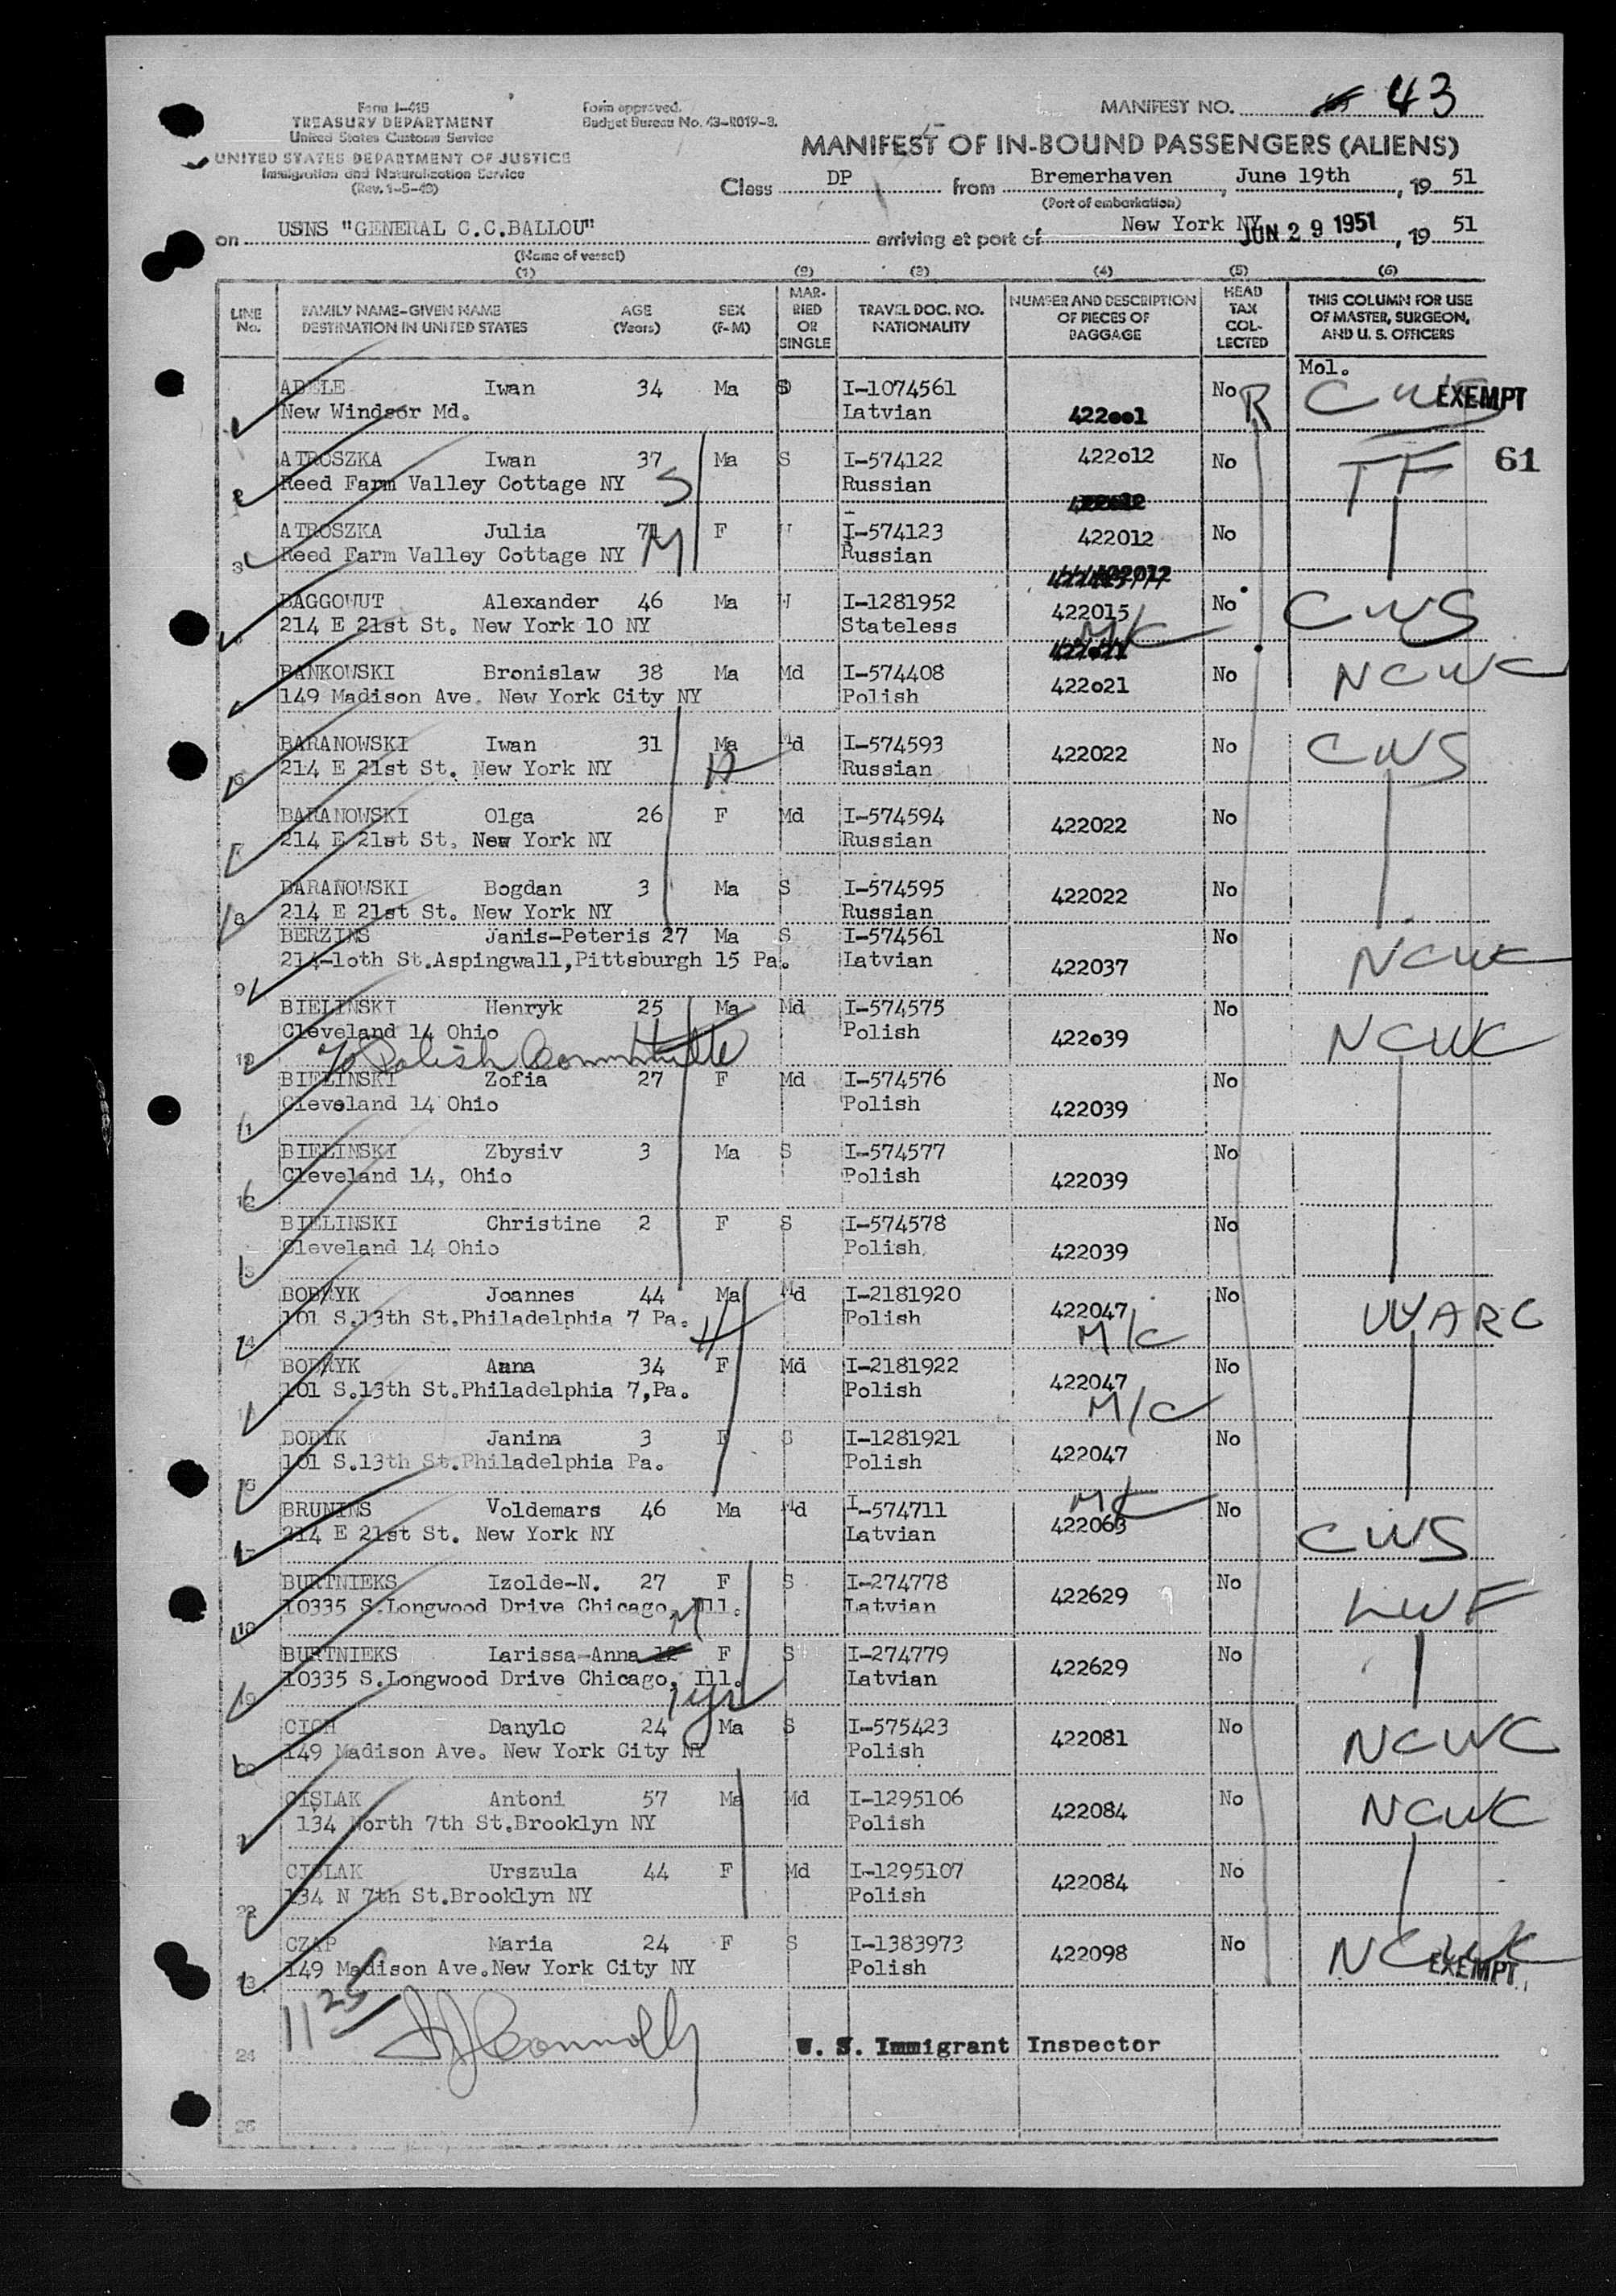 Form I-415
TREASURY DEPARTMENT
United States Customs Service
UNITED STATES DEPARTMENT OF JUSTICE
Immigration and Naturalization Service
(Rev. 1-5-49)
Form approved.
Budget Bureau No. 43-R019-3.
MANIFEST NO. 43
MANIFEST OF IN-BOUND PASSENGERS (ALIENS)
Class DP from Bremerhaven, June 19th, 19 51
(Port of embarkation)
on USNS "GENERAL C.C.BALLOU" arriving at port of New York NY JUN 29 1951, 19 51
(Name of vessel)
(1) (2) (3) (4) (5) (6)
LINE No. FAMILY NAME-GIVEN NAME DESTINATION IN UNITED STATES AGE (Years) SEX (F-M) MARRIED OR SINGLE TRAVEL DOC. NO. NATIONALITY NUMBER AND DESCRIPTION OF PIECES OF BAGGAGE HEAD TAX COLLECTED THIS COLUMN FOR USE OF MASTER, SURGEON, AND U. S. OFFICERS
Mol.
ADELE Iwan 34 Ma I-1074561 No R CWS EXEMPT
New Windsor Md. Latvian 422001
ATROSZKA Iwan 37 Ma S I-574122 422012 No TF 61
2 Reed Farm Valley Cottage NY S Russian
ATROSZKA Julia 71 F W I-574123 422012 No
3 Reed Farm Valley Cottage NY M Russian
BAGGOWUT Alexander 46 Ma W I-1281952 422015 No CWS
214 E 21st St. New York 10 NY Stateless M/C
BANKOWSKI Bronislaw 38 Ma Md I-574408 422021 No NCWC
149 Madison Ave. New York City NY Polish
BARANOWSKI Iwan 31 Ma Md I-574593 422022 No CWS
6 214 E 21st St. New York NY H Russian
BARANOWSKI Olga 26 F Md I-574594 422022 No
7 214 E 21st St. New York NY Russian
BARANOWSKI Bogdan 3 Ma S I-574595 422022 No
8 214 E 21st St. New York NY Russian
BERZINS Janis-Peteris 27 Ma S I-574561 No NCWC
9 214-10th St.Aspingwall,Pittsburgh 15 Pa. Latvian 422037
BIELINSKI Henryk 25 Ma Md I-574575 No NCWC
Cleveland 14 Ohio H Polish 422039
10 % Polish Committee
BIELINSKI Zofia 27 F Md I-574576 No
11 Cleveland 14 Ohio Polish 422039
BIELINSKI Zbysiv 3 Ma S I-574577 No
12 Cleveland 14, Ohio Polish 422039
BIELINSKI Christine 2 F S I-574578 No
13 Cleveland 14 Ohio Polish 422039
BOBRYK Joannes 44 Ma Md I-2181920 422047 No UUARC
14 101 S.13th St.Philadelphia 7 Pa. H Polish M/C
BOBRYK Anna 34 F Md I-2181922 422047 No
101 S.13th St.Philadelphia 7,Pa. Polish M/C
BOBYK Janina 3 F S I-1281921 422047 No
16 101 S.13th St.Philadelphia Pa. Polish
BRUNINS Voldemars 46 Ma Md I-574711 M/C No CWS
17 214 E 21st St. New York NY Latvian 422063
BURTNIEKS Izolde-N. 27 F S I-274778 422629 No LWF
18 10335 S.Longwood Drive Chicago, Ill. M Latvian
BURTNIEKS Larissa-Anna F S I-274779 422629 No
19 10335 S.Longwood Drive Chicago, Ill. 1 yr Latvian
CICH Danylo 24 Ma S I-575423 422081 No NCWC
20 149 Madison Ave. New York City NY Polish
CISLAK Antoni 57 Ma Md I-1295106 422084 No NCWC
21 134 North 7th St.Brooklyn NY Polish
CISLAK Urszula 44 F Md I-1295107 422084 No
22 134 N 7th St.Brooklyn NY Polish
CZAP Maria 24 F S I-1383973 422098 No NCWC
23 149 Madison Ave.New York City NY Polish EXEMPT
11 25
24 U. S. Immigrant Inspector
25